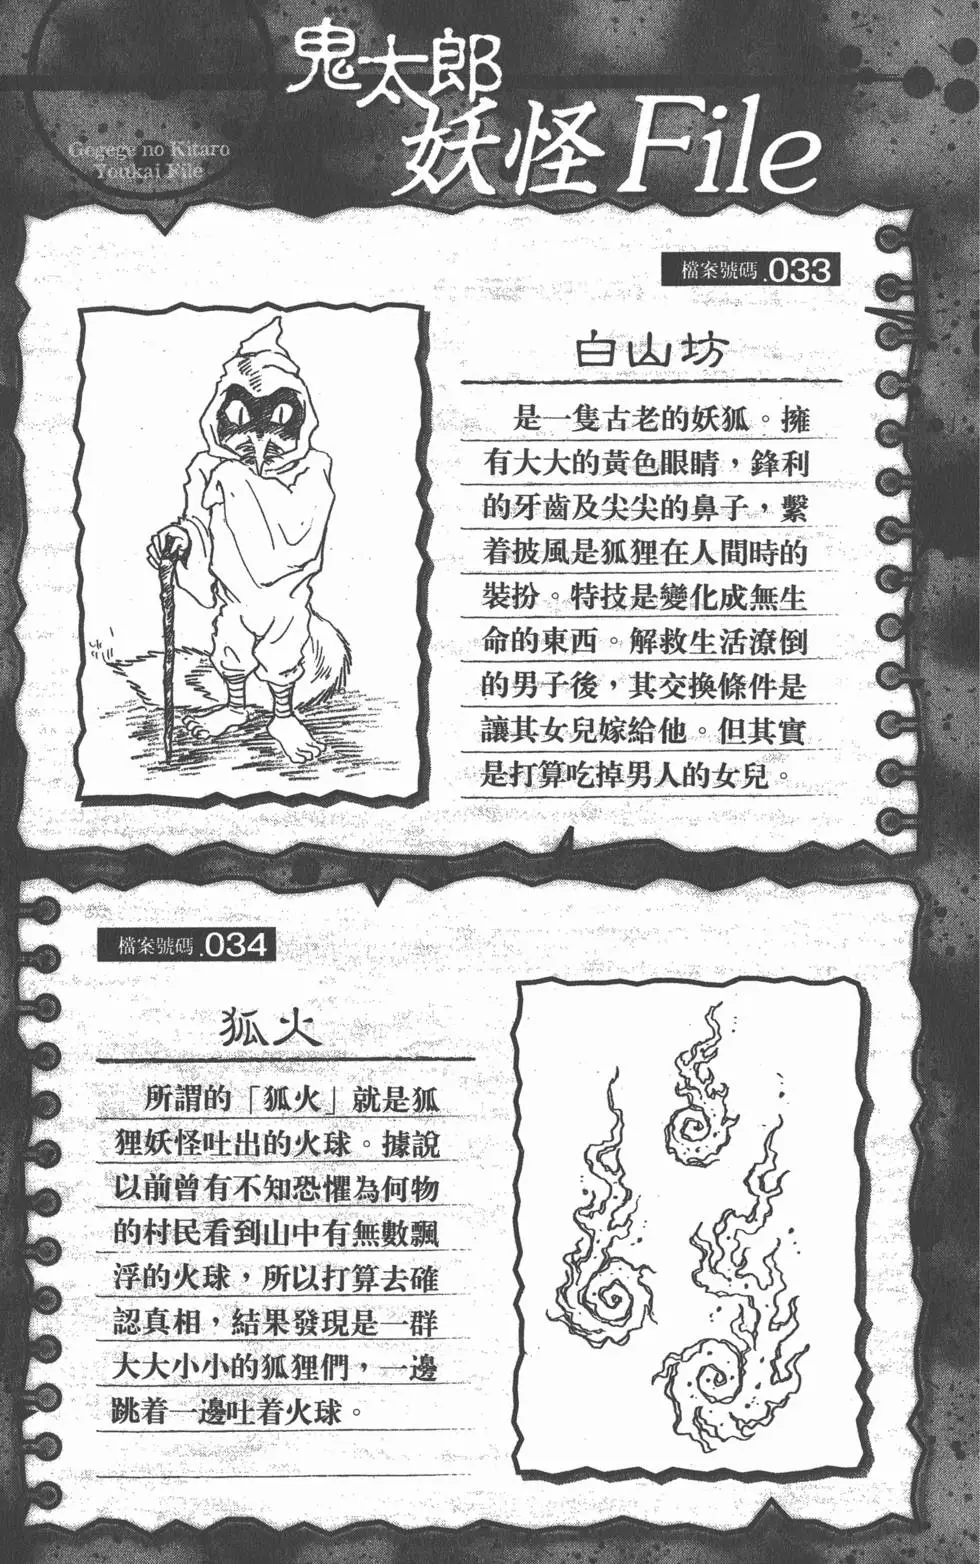 鬼太郎
妖怪File
Gegege no Kitaro
Youkai File
檔案號碼.033
白山坊
是一隻古老的妖狐。擁
有大大的黃色眼睛，鋒利
的牙齒及尖尖的鼻子，繫
着披風是狐狸在人間時的
裝扮。特技是變化成無生
命的東西。解救生活潦倒
的男子後，其交換條件是
讓其女兒嫁給他。但其實
是打算吃掉男人的女兒。
檔案號碼.034
狐火
所謂的「狐火」就是狐
狸妖怪吐出的火球。據說
以前曾有不知恐懼為何物
的村民看到山中有無數飄
浮的火球，所以打算去確
認真相，結果發現是一群
大大小小的狐狸們，一邊
跳着一邊吐着火球。